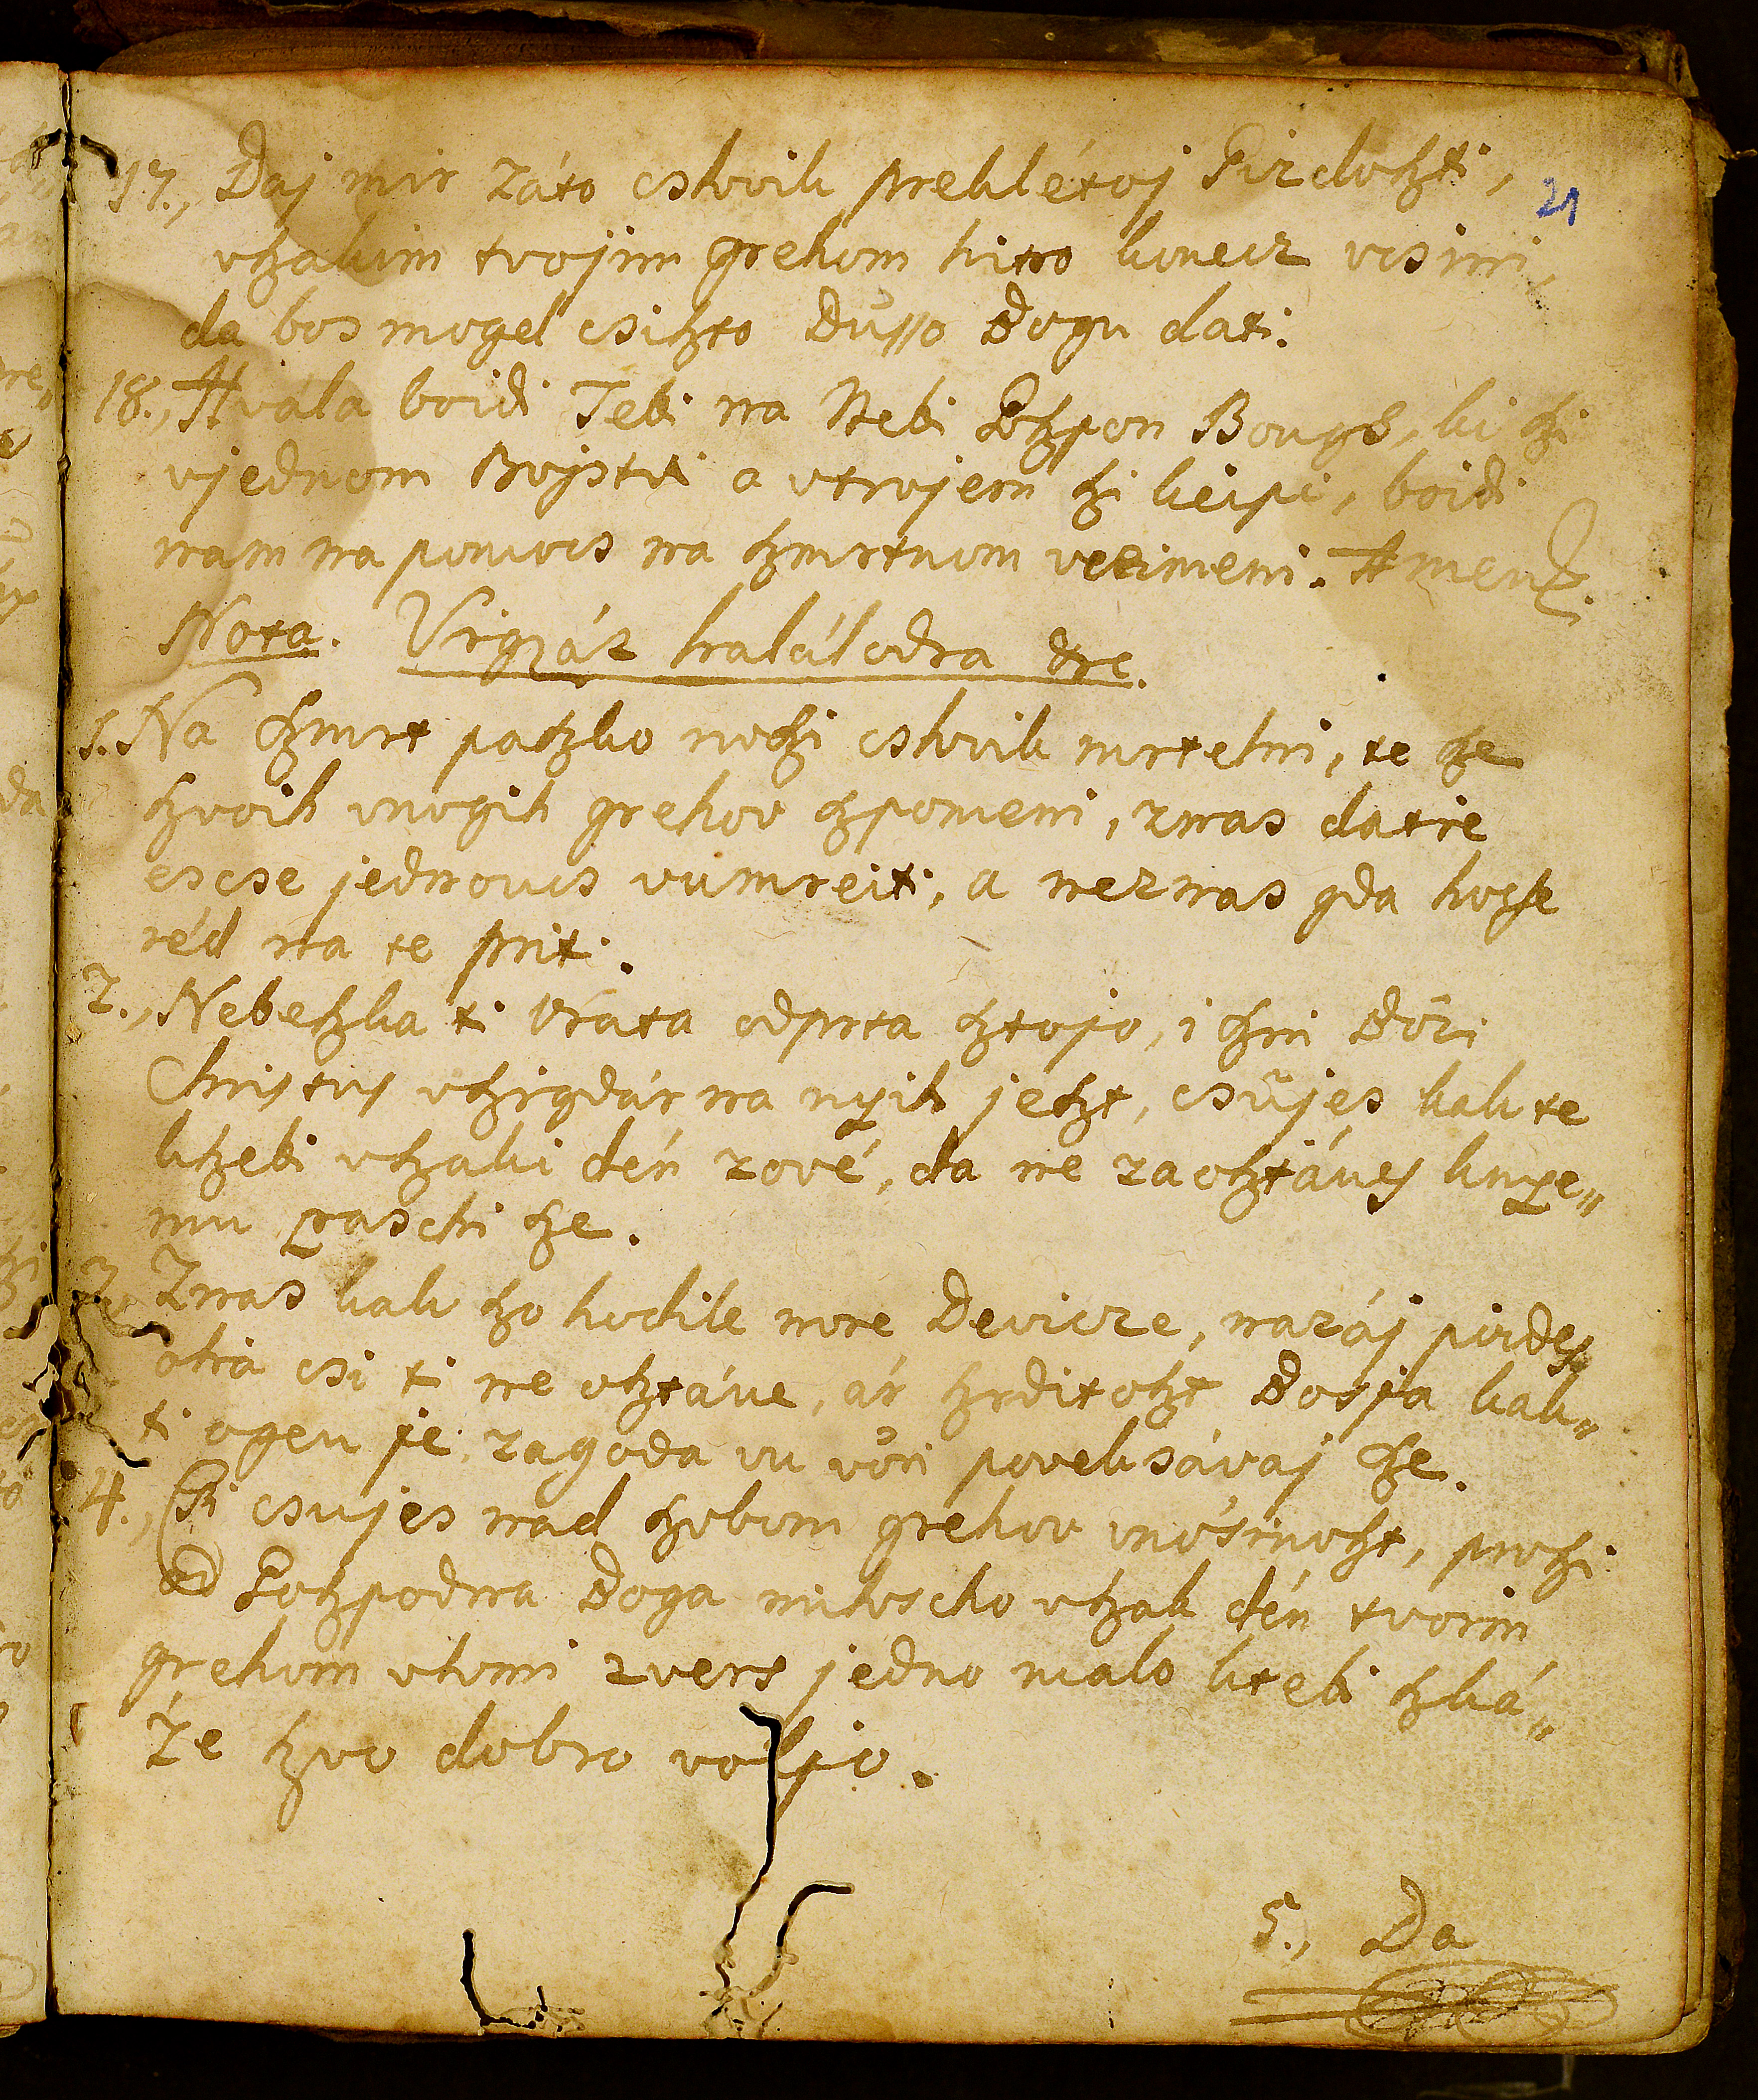 17., Daj mir záto cslovik preklétoj Girdoſzti, 21
vſzakim tvojim grehom hitro konecz vcsini,
da bos mogel csiſzto Düsso Bogu dati.
18., Hvála boidi Tebi na Nebi Goſzpon Bougs, ki ſzi
vjednom Bojstvi a vtrojem ſzi keipi, boidi
nam na pomocs na ſzmrtnom vreimeni. Amen.
Nota. Virgzáz halál odra etc.
1. Na ſzmrt paſzko noſzi cslovik mrtelni, te ſze
ſzvoih vnogih grehov ſzpomeni, znas da tre
escse jednoucs vumreiti, a neznas gda hocse
réd na te priti.
2., Nebeſzka ti vráta odprta ſztojo, i ſzni Bo'zi
Christus vſzigdár na nyih jeſzt, csüjes kak te
kſzebi vſzaki dén zové, da ne zaoſztánes knye„
mu paschi ſze.
3. Znas kak ſzo hodile nore Devicze, nazáj poides
otia csi ti ne oſztáve, ár ſzrditoſzt Bosja kak„
ti ogen je, zagoda vu vöri poveksávaj ſze.
4., Csi csujes nad ſzobom grehov mo'snoſzt, proſzi
od Goſzpodna Boga miloscho vſzak dén tvorin
grehom vtomi zvers jedno malo ktebi ſzká„
'ze ſzvo dobro voljo.
5., Da